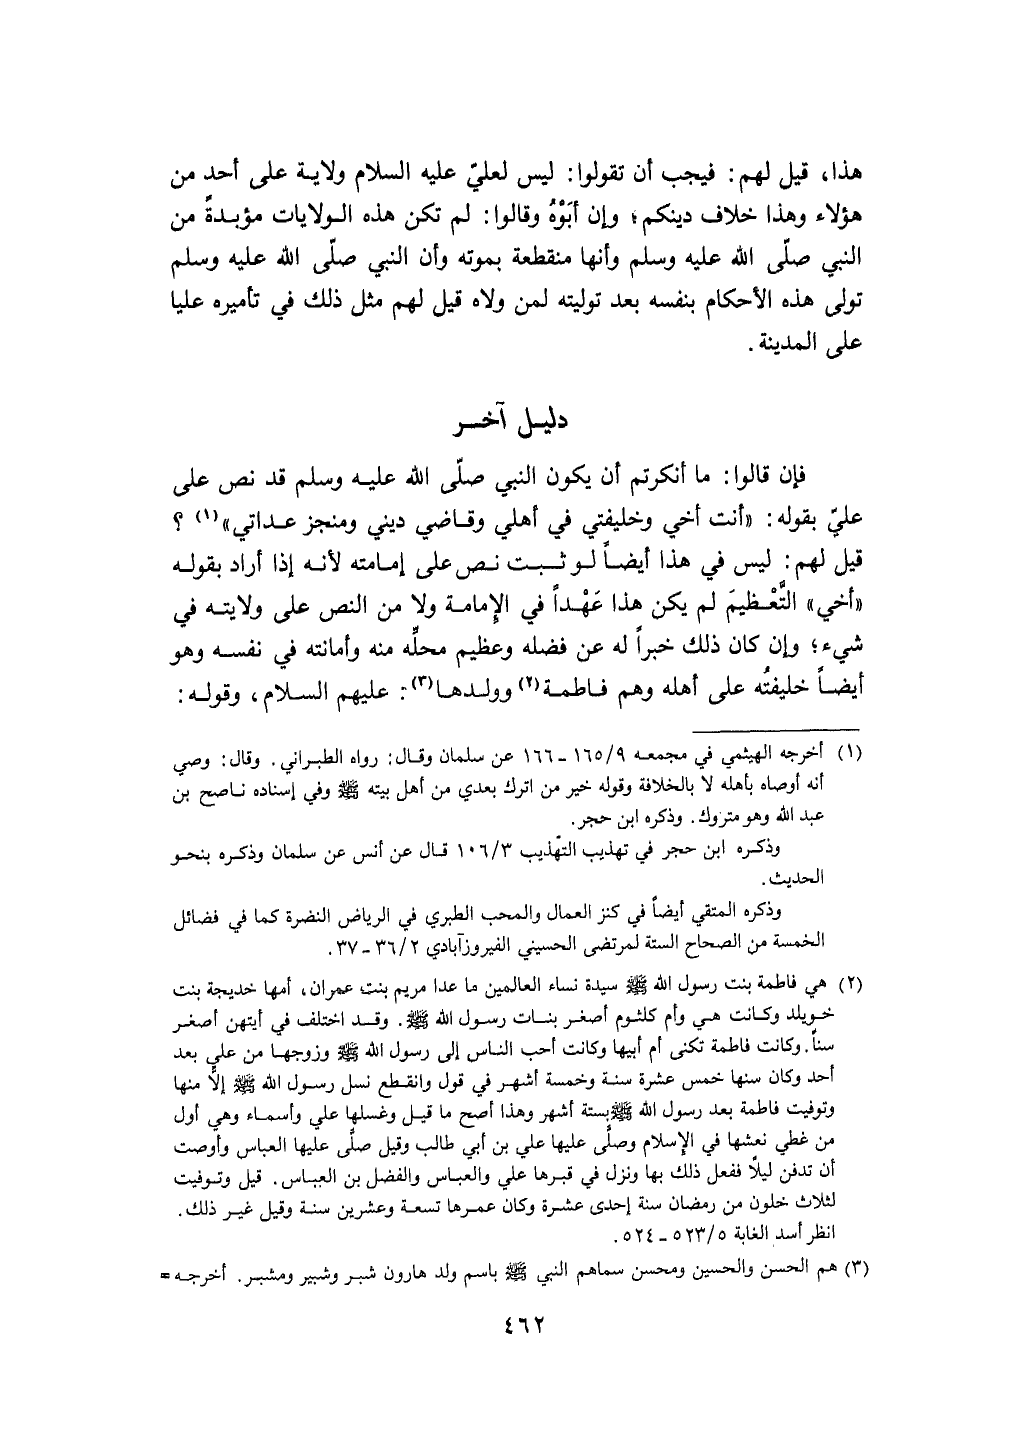 هذا، قيل لهم: فيجب أن تقولوا: ليس لعليّ عليه السلام ولاية على أحد من
هؤلاء وهذا خلاف دينكم؛ وإن أبَوْهُ وقالوا: لم تكن هذه الولايات مؤبدةً من
النبي صلّى الله عليه وسلم وأنها منقطعة بموته وأن النبي صلّى الله عليه وسلم
تولى هذه الأحكام بنفسه بعد توليته لمن ولاه قيل لهم مثل ذلك في تأميره عليا
على المدينة.
دليل آخر
فإن قالوا: ما أنكرتم أن يكون النبي صلّى الله عليه وسلم قد نص على
عليّ بقوله: «أنت أخي وخليفتي في أهلي وقاضي ديني ومنجز عداتي»(١) ؟
قيل لهم: ليس في هذا أيضاً لو ثبت نص على إمامته لأنه إذا أراد بقوله
«أخي» التَّعْظيمَ لم يكن هذا عَهْداً في الإمامة ولا من النص على ولايته في
شيء؛ وإن كان ذلك خبراً له عن فضله وعظيم محلِّه منه وأمانته في نفسه وهو
أيضاً خليفتُه على أهله وهم فاطمة(٢) وولدها(٣): عليهم السلام، وقوله:
(١) أخرجه الهيثمي في مجمعه ٩/ ١٦٥ ـ ١٦٦ عن سلمان وقال: رواه الطبراني. وقال: وصي
أنه أوصاه بأهله لا بالخلافة وقوله خير من اترك بعدي من أهل بيته ﷺ وفي إسناده ناصح بن
عبد الله وهو متروك. وذكره ابن حجر.
وذكره ابن حجر في تهذيب التهّذيب ٣/ ١٠٦ قال عن أنس عن سلمان وذكره بنحو
الحديث.
وذكره المتقي أيضاً في كنز العمال والمحب الطبري في الرياض النضرة كما في فضائل
الخمسة من الصحاح الستة لمرتضى الحسيني الفيروزآبادي ٢/ ٣٦ ـ ٣٧.
(٢) هي فاطمة بنت رسول الله ﷺ سيدة نساء العالمين ما عدا مريم بنت عمران، أمها خديجة بنت
خويلد وكانت هي وأم كلثوم أصغر بنات رسول الله ﷺ. وقد اختلف في أيتهن أصغر
سناً. وكانت فاطمة تكنى أم أبيها وكانت أحب الناس إلى رسول الله ﷺ وزوجها من علي بعد
أحد وكان سنها خمس عشرة سنة وخمسة أشهر في قول وانقطع نسل رسول الله ﷺ إلّا منها
وتوفيت فاطمة بعد رسول الله ﷺ بستة أشهر وهذا أصح ما قيل وغسلها علي وأسماء وهي أول
من غطي نعشها في الإسلام وصلَّى عليها علي بن أبي طالب وقيل صلَّى عليها العباس وأوصت
أن تدفن ليلًا ففعل ذلك بها ونزل في قبرها علي والعباس والفضل بن العباس. قيل وتوفيت
لثلاث خلون من رمضان سنة إحدى عشرة وكان عمرها تسعة وعشرين سنة وقيل غير ذلك.
انظر أسد الغابة ٥/ ٥٢٣ ـ ٥٢٤.
(٣) هم الحسن والحسين ومحسن سماهم النبي ﷺ باسم ولد هارون شبر وشبير ومشبر. أخرجه =
٤٦٢